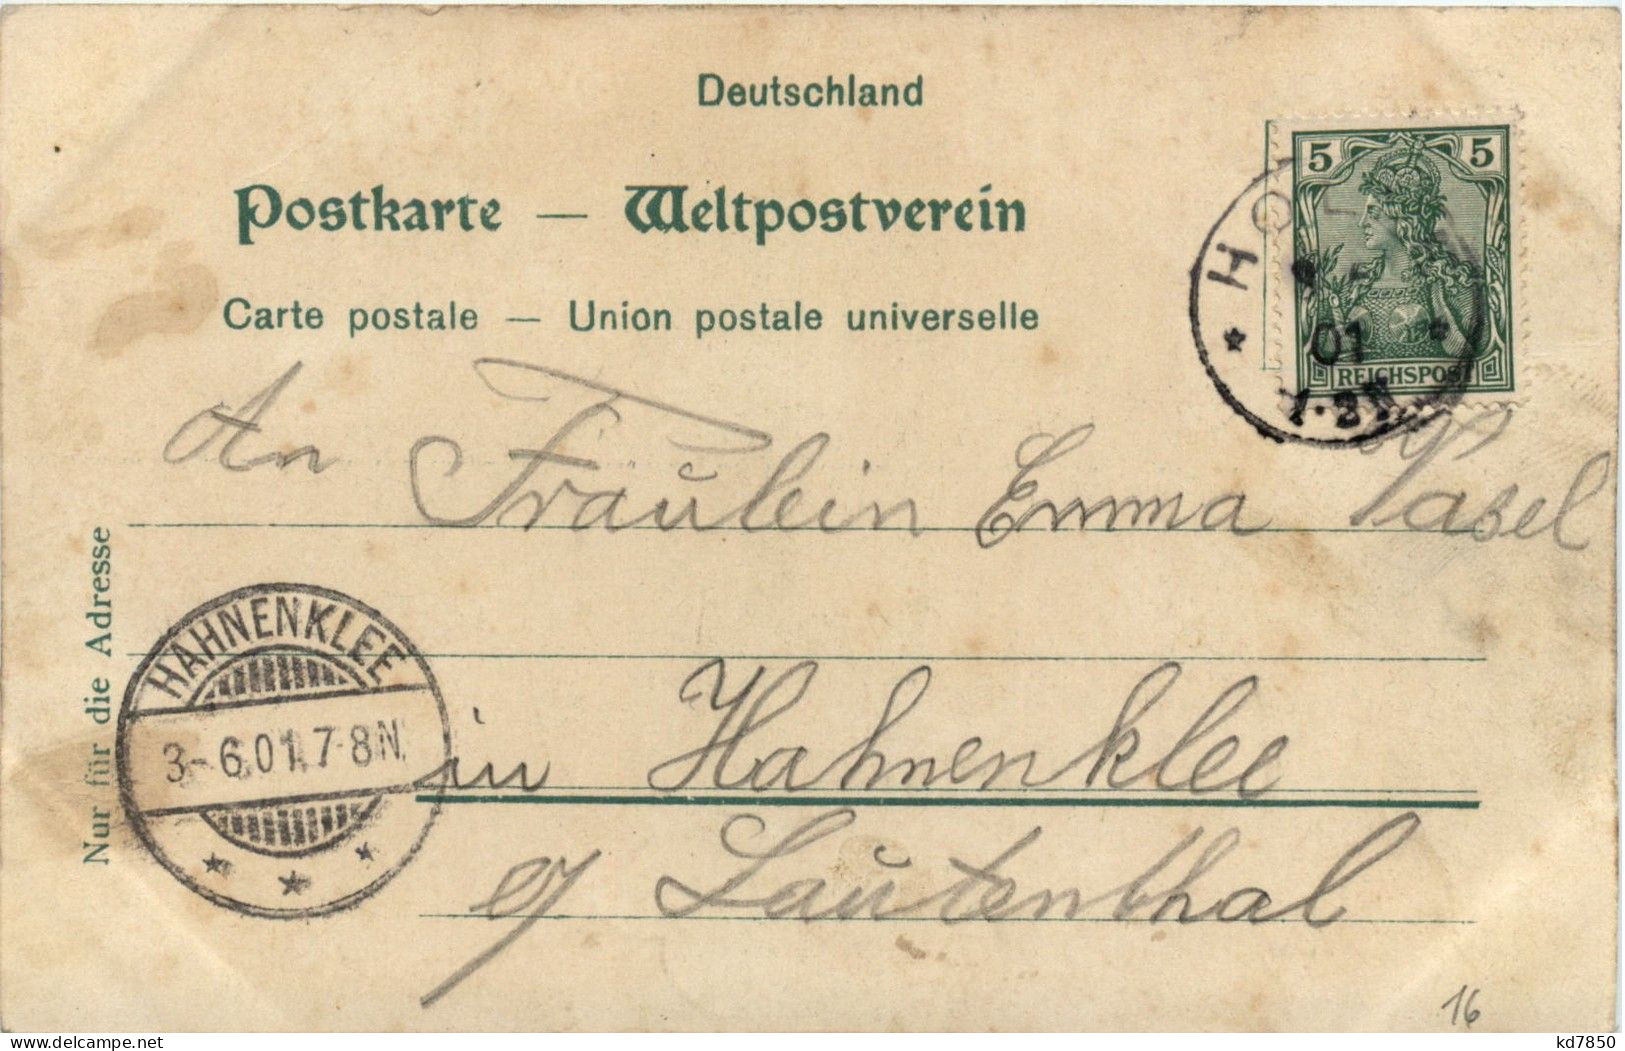 Deutschland
Postkarte — Weltpostverein
Carte postale — Union postale universelle
5 5
REICHSPOST
01
1-2N
An Fräulein Emma Vasel
Nur für die Adresse
HAHNENKLEE
3-6.01.7-8N.
in Hahnenklee
Lautenthal
16
kd7850